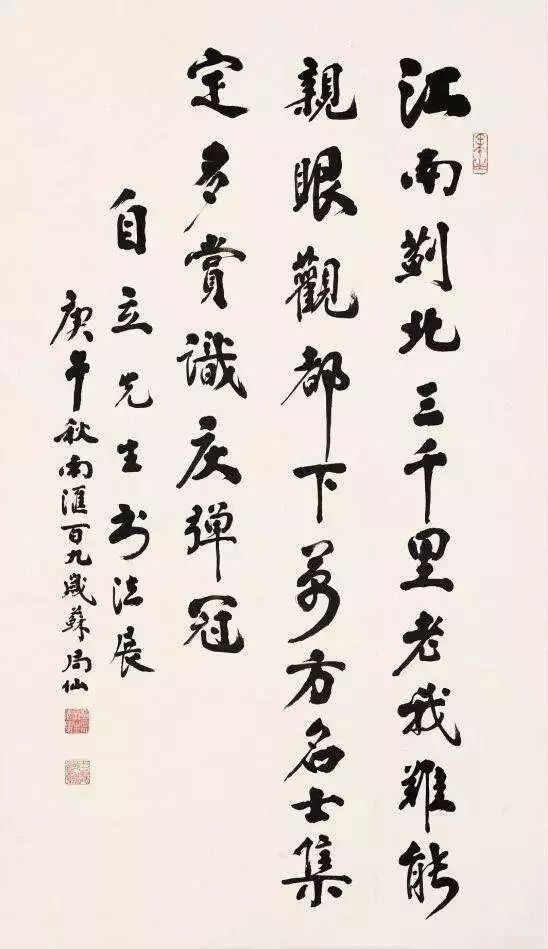 江南薊北三千里老我難能
親眼觀都下萬方名士集
定多賞識庆弹冠
自立先生书法展
庚午秋南滙百九歲蘇局仙